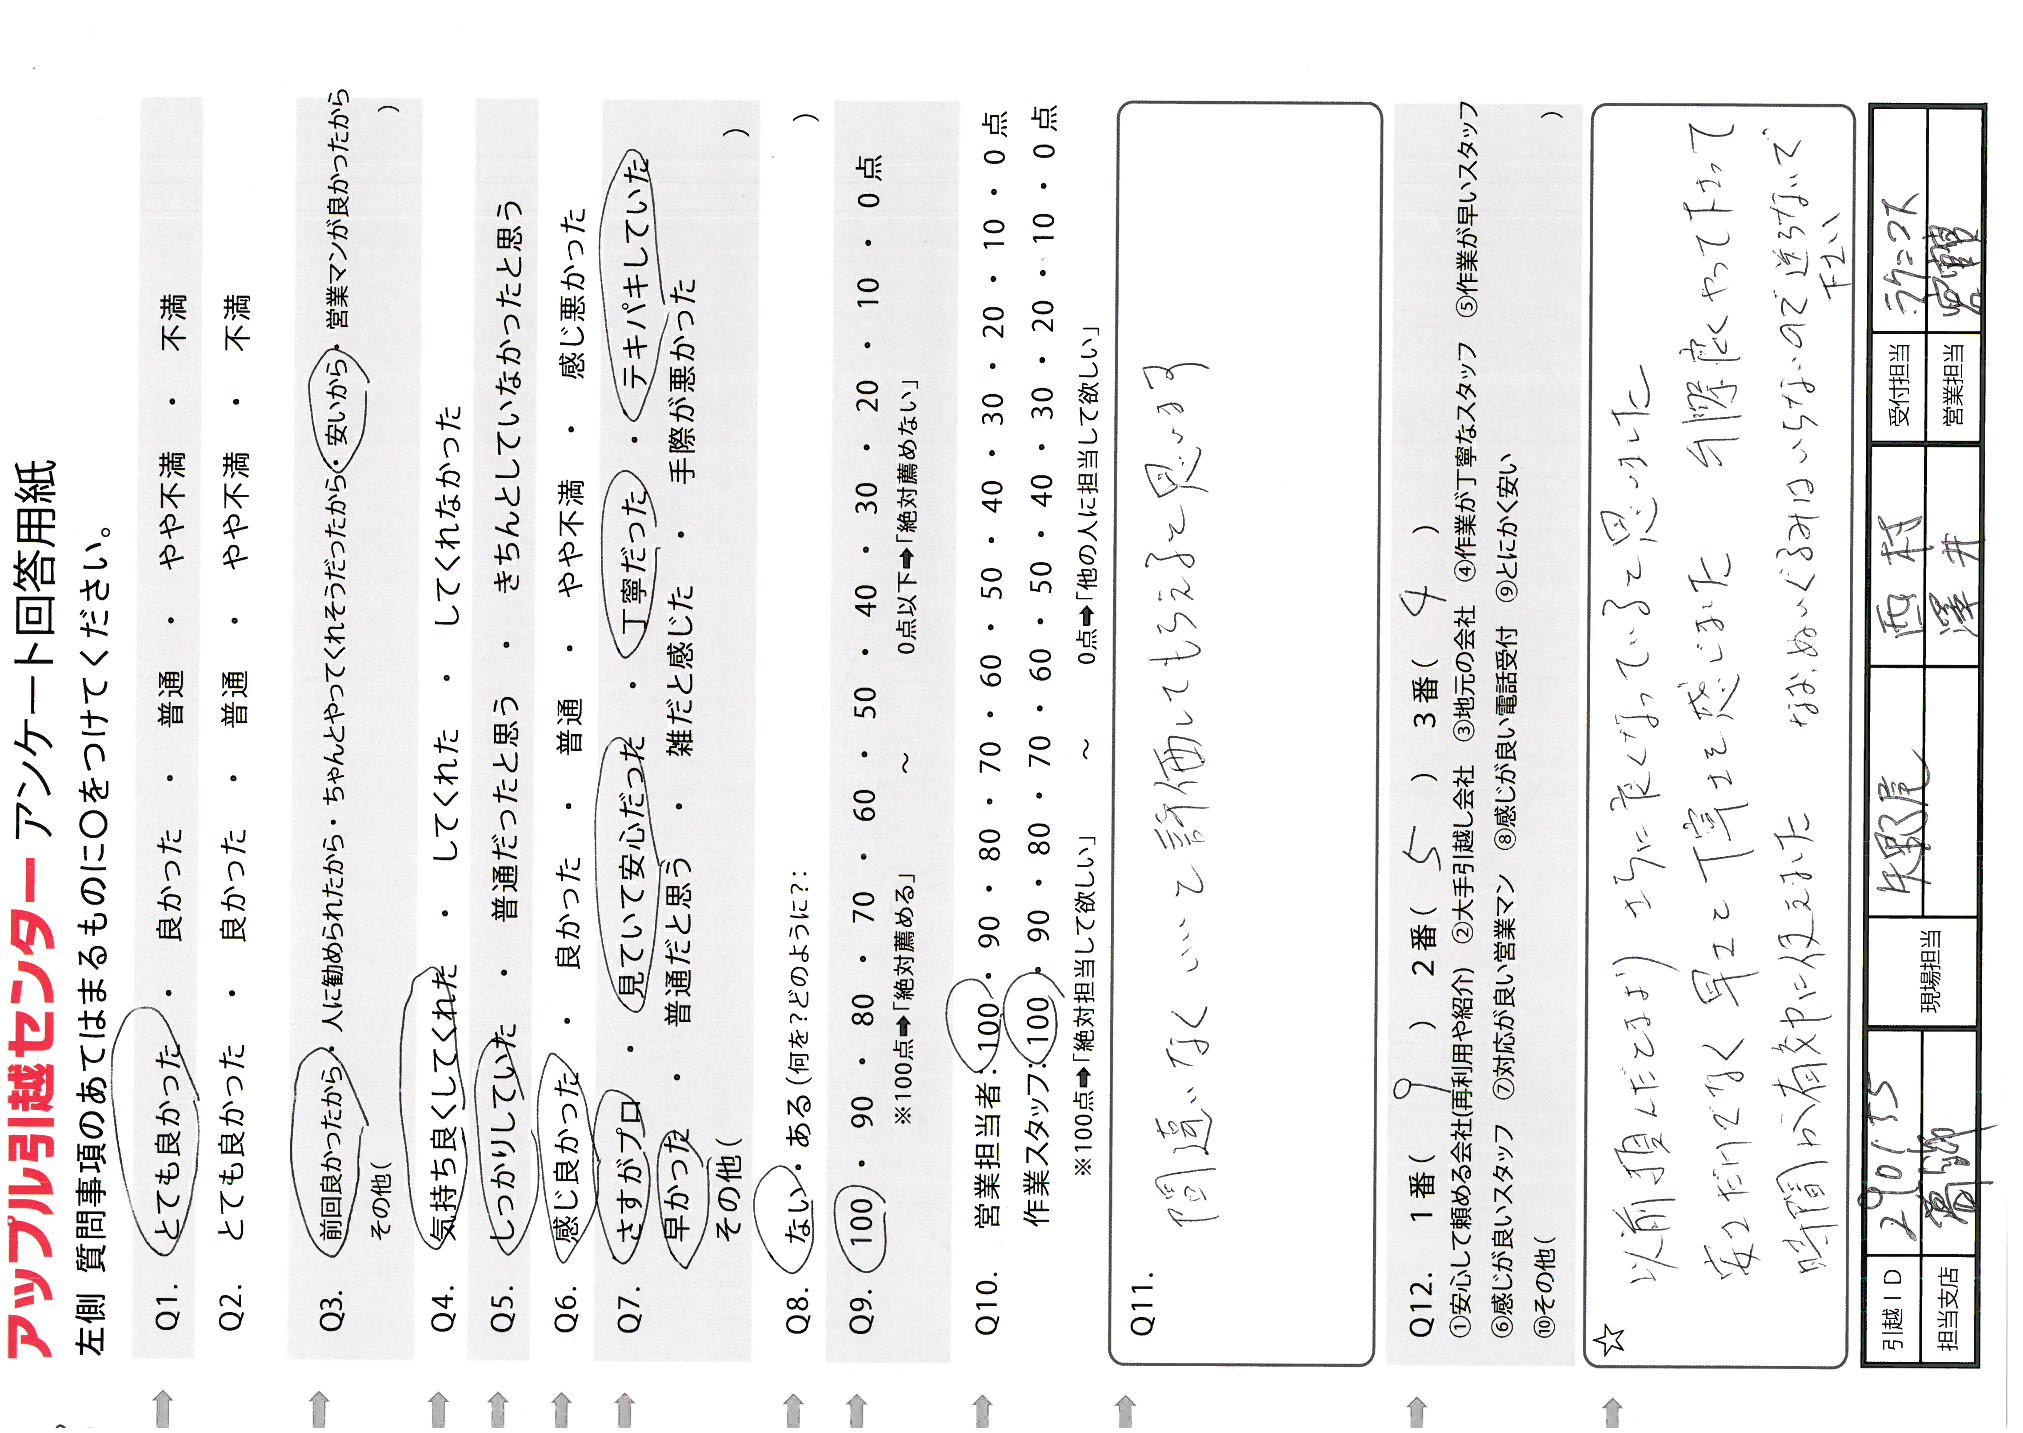 アップル引越センター アンケート回答用紙
左側 質問事項のあてはまるものに〇をつけてください。
Q1. とても良かった ・ 良かった ・ 普通 ・ やや不満 ・ 不満
Q2. とても良かった ・ 良かった ・ 普通 ・ やや不満 ・ 不満
Q3. 前回良かったから・人に勧められたから・ちゃんとやってくれそうだったから・安いから・営業マンが良かったから
その他( )
Q4. 気持ち良くしてくれた ・ してくれた ・ してくれなかった
Q5. しっかりしていた ・ 普通だったと思う ・ きちんとしていなかったと思う
Q6. 感じ良かった ・ 良かった ・ 普通 ・ やや不満 ・ 感じ悪かった
Q7. さすがプロ ・ 見ていて安心だった ・ 丁寧だった ・ テキパキしていた
早かった ・ 普通だと思う ・ 雑だと感じた ・ 手際が悪かった
その他( )
Q8. ない・ある(何を?どのように?: )
Q9. 100 ・ 90 ・ 80 ・ 70 ・ 60 ・ 50 ・ 40 ・ 30 ・ 20 ・ 10 ・ 0 点
※100点➡「絶対薦める」 ～ 0点以下➡「絶対薦めない」
Q10. 営業担当者:100・90・80・70・60・50・40・30・20・10・0点
作業スタッフ:100・90・80・70・60・50・40・30・20・10・0点
※100点➡「絶対担当して欲しい」 ～ 0点➡「他の人に担当して欲しい」
Q11.
間違いなく いいと評価してもらえると思います
Q12. 1番( 9 ) 2番( 5 ) 3番( 4 )
①安心して頼める会社(再利用や紹介) ②大手引越し会社 ③地元の会社 ④作業が丁寧なスタッフ ⑤作業が早いスタッフ
⑥感じが良いスタッフ ⑦対応が良い営業マン ⑧感じが良い電話受付 ⑨とにかく安い
⑩その他( )
☆
以前頼んだときより さらに良くなっていると思いました
安さだけでなく 早さと丁寧さを感じました 手際良くやって下さって
時間が有効に使えました なお、ぬいぐるみはいらないので送らないで
下さい
引越ID 290155 現場担当 矢野尾 西村 受付担当 ラクニコス
担当支店 澤井 営業担当